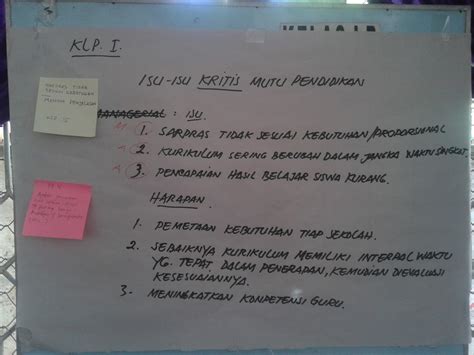 KLP. I.
ISU-ISU KRITIS MUTU PENDIDIKAN
MANAGERIAL : ISU.
1. SARPRAS TIDAK SESUAI KEBUTUHAN/PROPORSIONAL
2. KURIKULUM SERING BERUBAH DALAM JANGKA WAKTU SINGKAT.
3. PENCAPAIAN HASIL BELAJAR SISWA KURANG.
HARAPAN.
1. PEMETAAN KEBUTUHAN TIAP SEKOLAH.
2. SEBAIKNYA KURIKULUM MEMILIKI INTERPAL WAKTU
YG. TEPAT DALAM PENERAPAN, KEMUDIAN DIEVALUASI
KESESUAIANNYA.
3- MENINGKATKAN KOMPETENSI GURU.